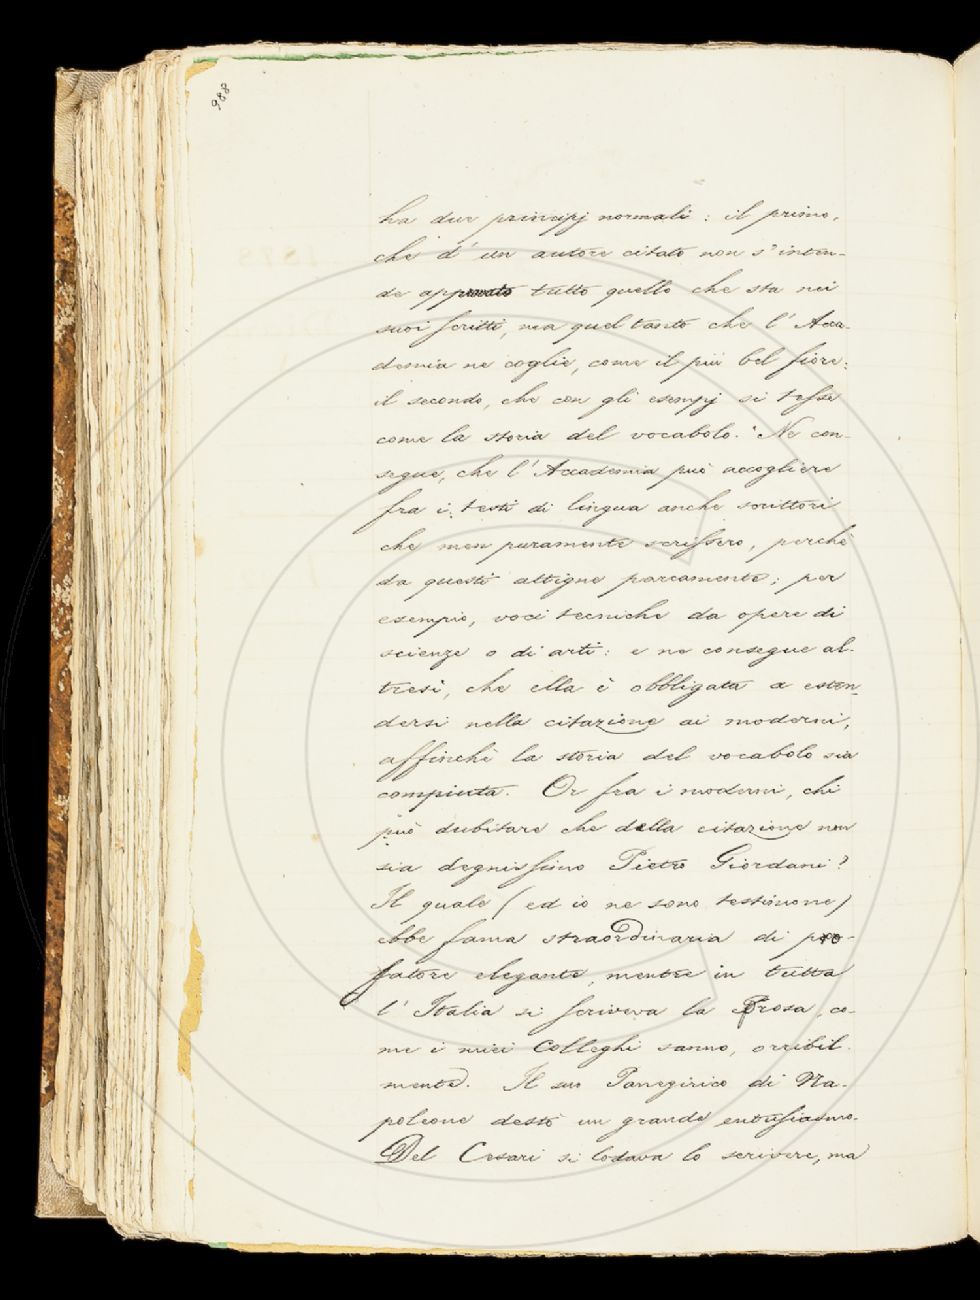 988
ha due principj normali: il primo,
che d'un autore citato non s'inten-
de approvato tutto quello che sta nei
suoi scritti, ma quel tanto che l'Acca-
demia ne coglie, come il più bel fiore:
il secondo, che con gli esempj si tesse
come la storia del vocabolo. Ne con-
segue, che l'Accademia può accogliere
fra i testi di lingua anche scrittori
che men puramente scrissero, perchè
da questi attigne parcamente; per
esempio, voci tecniche da opere di
scienze o di arti: e ne consegue al-
tresì, che ella è obbligata a esten-
dersi nella citazione ai moderni,
affinchè la storia del vocabolo sia
compiuta. Or fra i moderni, chi
può dubitare che della citazione non
sia degnissimo Pietro Giordani?
Il quale (ed io ne sono testimone)
ebbe fama straordinaria di pro-
satore elegante, mentre in tutta
l'Italia si scriveva la Prosa, co-
me i miei Colleghi sanno, orribil-
mente. Il suo Panegirico di Na-
poleone destò un grande entusiasmo.
Del Cesari si lodava lo scrivere, ma